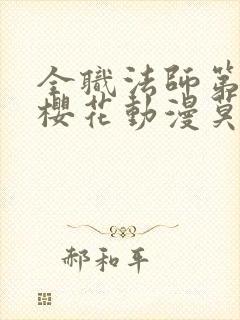 全職法師第
櫻花動漫莫
郝和平